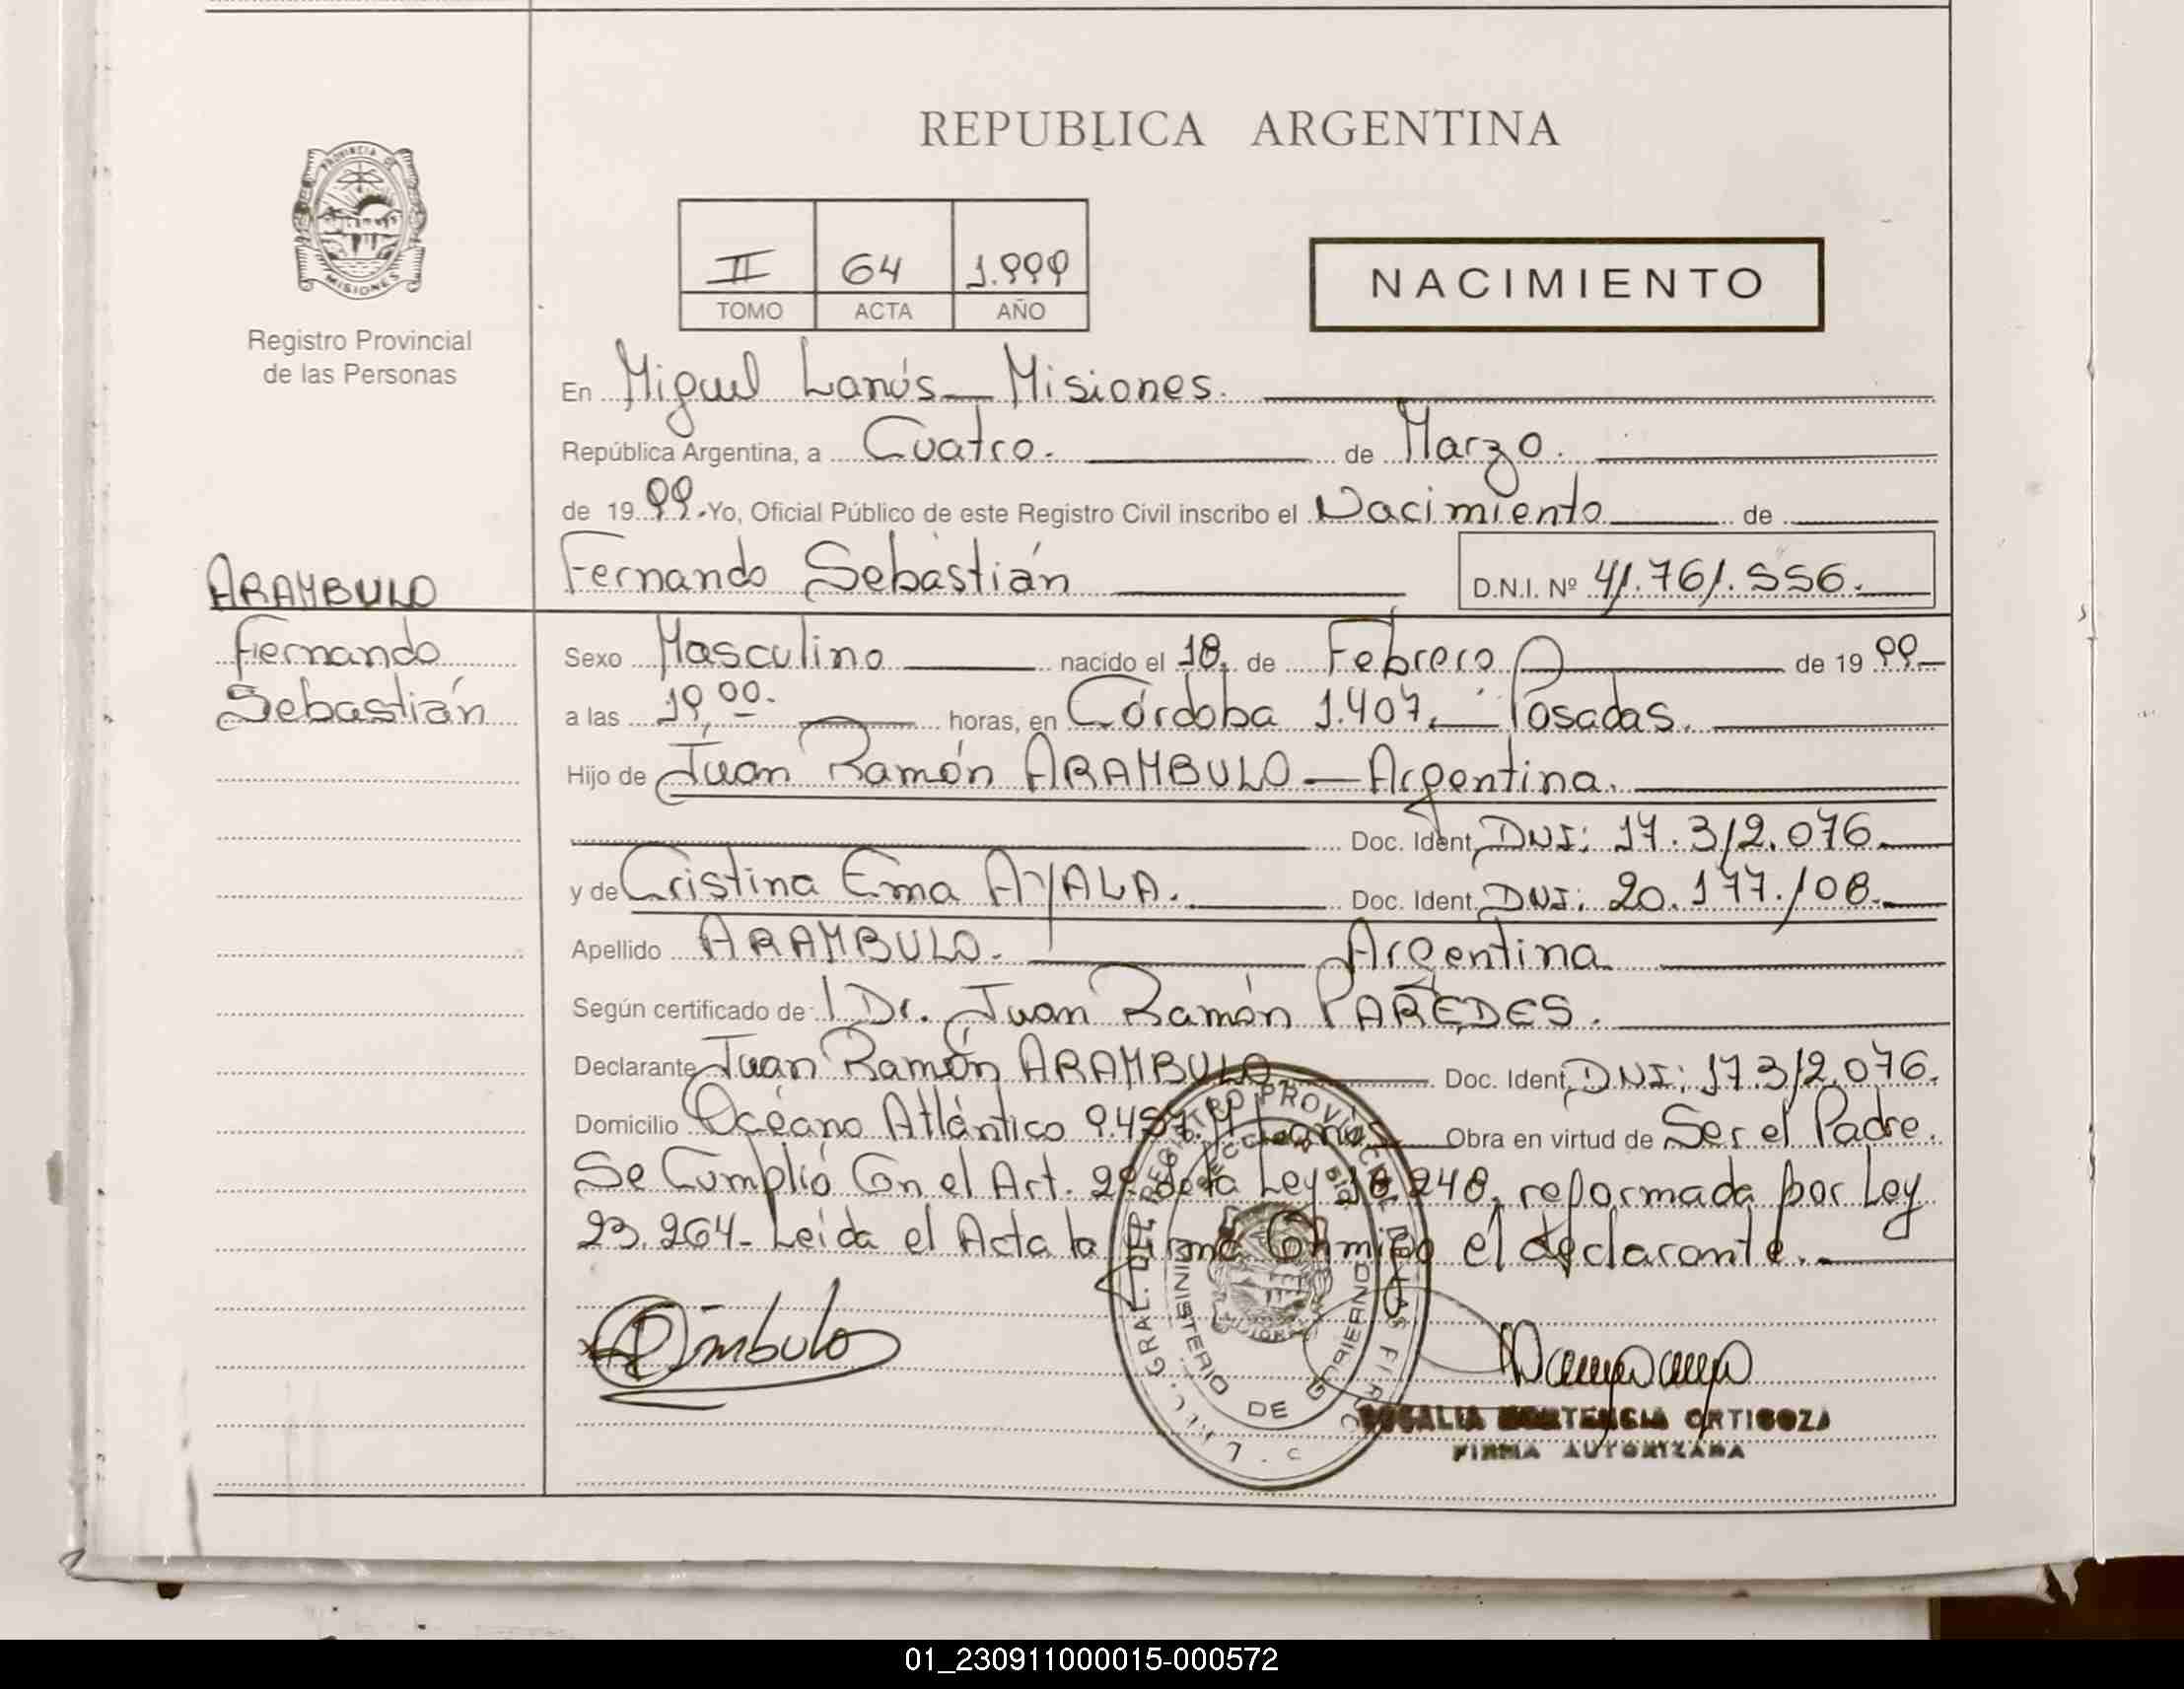 REPUBLICA ARGENTINA
PROVINCIA DE
MISIONES
Registro Provincial
de las Personas
II 64 1.999
TOMO ACTA AÑO
NACIMIENTO
En Miguel Lanús - Misiones.
República Argentina, a Cuatro. de Marzo.
de 19 99. Yo, Oficial Público de este Registro Civil inscribo el Nacimiento de
Fernando Sebastián D.N.I. Nº 41.761.556.
ARAMBULO
Fernando
Sebastián
Sexo Masculino nacido el 18, de Febrero de 19 99
a las 19,00. horas, en Córdoba 1.407. Posadas.
Hijo de Juan Ramón ARAMBULO - Argentina.
Doc. Ident. DNI: 17.312.076.
y de Cristina Ema AYALA. Doc. Ident. DNI: 20.177.108.
Apellido ARAMBULO. Argentina
Según certificado de: Dr. Juan Ramón PAREDES.
Declarante Juan Ramón ARAMBULO Doc. Ident. DNI: 17.312.076.
Domicilio Océano Atlántico 9.457. M. Lanús Obra en virtud de Ser el Padre.
Se Cumplió Con el Art. 2º de la Ley 18.248, reformada por Ley
23.264- Leída el Acta la firma Conmigo el declarante.
REGISTRO PROVINCIAL DE LAS
MINISTERIO DE GOBIERNO
ROSALIA HORTENCIA ORTIGOZA
FIRMA AUTORIZADA
01_230911000015-000572